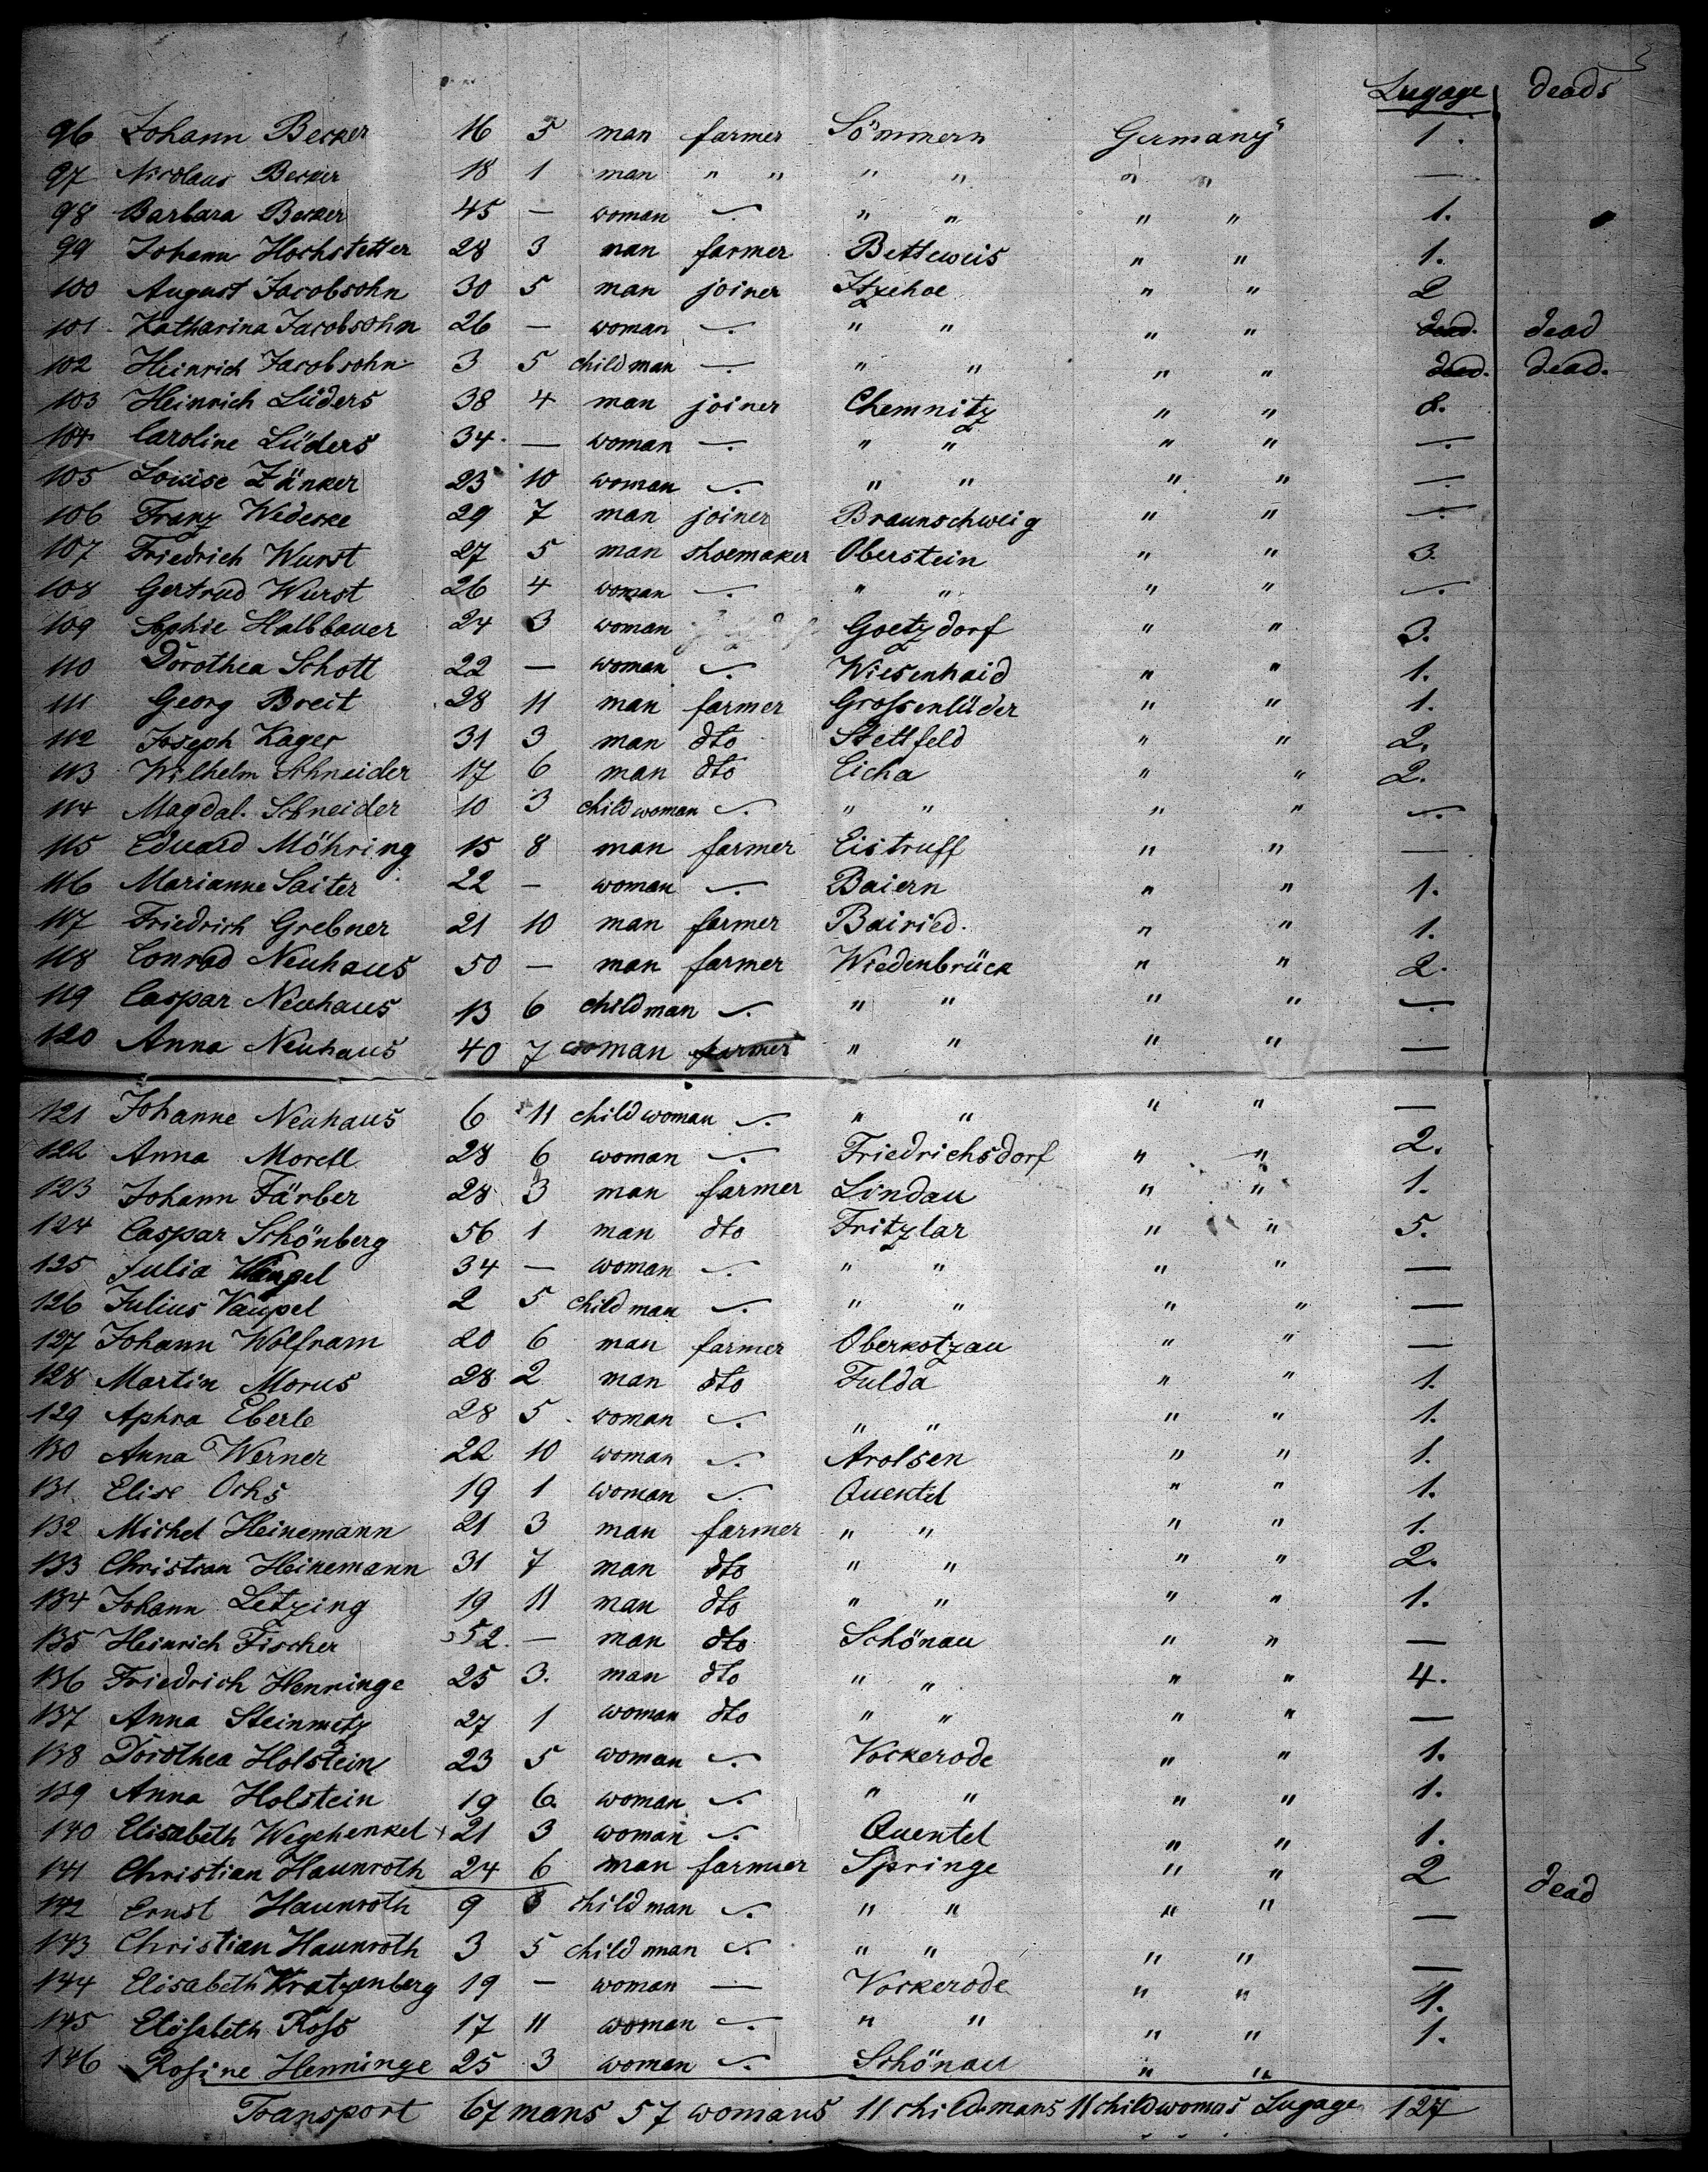 Lugage deads
96 Johann Becker 16 5 man farmer Sömmern Germany 1.
97 Nicolaus Becker 18 1 man " " " " " " —
98 Barbara Becker 45 — woman —. " " " " 1.
99 Johann Hochstetter 28 3 man farmer Betteweis " " 1.
100 August Jacobsohn 30 5 man joiner Itzehoe " " 2
101 Katharina Jacobsohn 26 — woman —. " " " " dead. dead
102 Heinrich Jacobsohn 3 5 child man — " " " " dead. dead.
103 Heinrich Lüders 38 4 man joiner Chemnitz " " 8.
104. Caroline Lüders 34. — woman —. " " " " —.
105 Louise Zänker 23 10 woman —. " " " " —.
106 Franz Wedecke 29 7 man joiner Braunschweig " " —.
107 Friedrich Wurst 27 5 man shoemaker Oberstein " " 3.
108 Gertrud Wurst 26 4 woman —. " " " " —.
109 Sophie Halbbauer 24 3 woman Goetzdorf " " 3.
110 Dorothea Schott 22 — woman —. Wiesenhaid " " 1.
111 Georg Breit 28 11 man farmer Grossenlüder " " 1.
112 Joseph Kager 31 3 man dto Stettfeld " " 2.
113 Wilhelm Schneider 17 6 man dto Eicha " " 2.
114 Magdal. Schneider 10 3 child woman —. " " " " —.
115 Eduard Möhring 15 8 man farmer Eistruff " " —
116 Marianne Saiter 22 — woman —. Baiern " " 1.
117 Friedrich Grebner 21 10 man farmer Bairied. " " 1.
118 Conrad Neuhaus 50 — man farmer Wiedenbrück " " 2.
119 Caspar Neuhaus 13 6 child man —. " " " " —.
120 Anna Neuhaus 40 7 woman farmer " " " " —
121 Johanne Neuhaus 6 11 child woman —. " " " " —
122 Anna Morell 28 6 woman —. Friedrichsdorf " " 2.
123 Johann Färber 28 3 man farmer Lindau " " 1.
124 Caspar Schönberg 56 1 man dto Fritzlar " " 5.
125 Julia Vaupel 34 — woman —. " " " " —
126 Julius Vaupel 2 5 child man —. " " " " —
127 Johann Wolfram 20 6 man farmer Oberkotzau " " —
128 Martin Morus 28 2 man dto Fulda " " 1.
129 Aphra Eberle 28 5. woman —. " " " " 1.
130 Anna Werner 22 10 woman —. Arolsen " " 1.
131. Elise Ochs 19 1 woman —. Quentel " " 1.
132 Michel Heinemann 21 3 man farmer " " " " 1.
133 Christian Heinemann 31 7 man dto " " " " 2.
134 Johann Letzing 19 11 man dto " " " " 1.
135 Heinrich Fischer 52. — man dto Schönau " " —
136 Friedrich Henninge 25 3. man dto " " " " 4.
137 Anna Steinmetz 27 1 woman dto " " " " —
138 Dorothea Holstein 23 5 woman —. Vockerode " " 1.
139 Anna Holstein 19 6. woman —. " " " " 1.
140 Elisabeth Wegehenkel 21 3 woman —. Quentel " " 1.
141 Christian Haunroth 24 6 man farmer Springe " " 2 dead
142 Ernst Haunroth 9 8 child man —. " " " " —
143 Christian Haunroth 3 5 child man —. " " " " —
144 Elisabeth Kratzenberg 19 — woman — Vockerode " " 1.
145 Elisabeth Ross 17 11 woman —. " " " " 1.
146 Rosine Henninge 25 3 woman —. Schönau " "
Transport 67 mans 57 womans 11 child mans 11 child womans Lugage 127